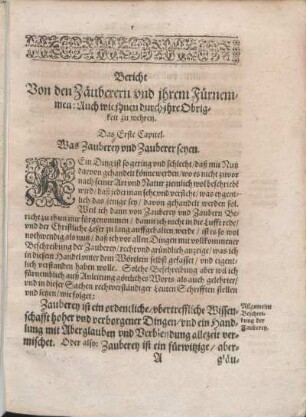 Bericht
Von den Zäuberern vnd jhrem Fürnem-
men: Auch wie jhnen durch jhre Obrig-
keit zu wehren.
Das Erste Capitel.
Was Zauberey vnd Zauberer seyen.
KEin Ding ist so gering vnd schlecht / daß mit Nutz
darvon gehandelt könne werden / wo es nicht zuvor
nach seiner Art vnd Natur ziemlich wol beschrieben
wird / daß jederman sehe vnd verstehe / was eygent-
lich das jenige sey / davon gehandelt werden sol.
Weil ich dann von Zauberey vnd Zaubern Be-
richt zu thun mir fürgenommen / damit ich nicht in der jrre lauffe /
vnd der Christliche Leser zu lang auffgehalten werde / ist es so viel
nothwendig als nutz / daß ich vor allen Dingen mit vollkommener
Beschreibung der Zauberey / recht vnd gründlich anzeige / was ich
in diesem Handel vnter dem Wörtlein selbst gefasset / vnd eigent-
lich verstanden haben wolle. Solche Beschreibung aber wil ich
fürnemlich auß Anleitung göttliches Worts / als auch gelehrter /
vnd in dieser Sachen rechtverständiger Leuten Schrifften stellen
vnd setzen / wie folget:
Zauberey ist ein ordenliche / vbertreffliche Wissen-
schafft hoher vnd verborgener Dingen / vnd ein Hand-
lung mit Aberglauben vnd Verbiendung allezeit ver-
mischet. Oder also: Zauberey ist ein fürwitzige / aber-
Allgemeine
Beschrei-
bung der
Zauberey.
A
gläu-